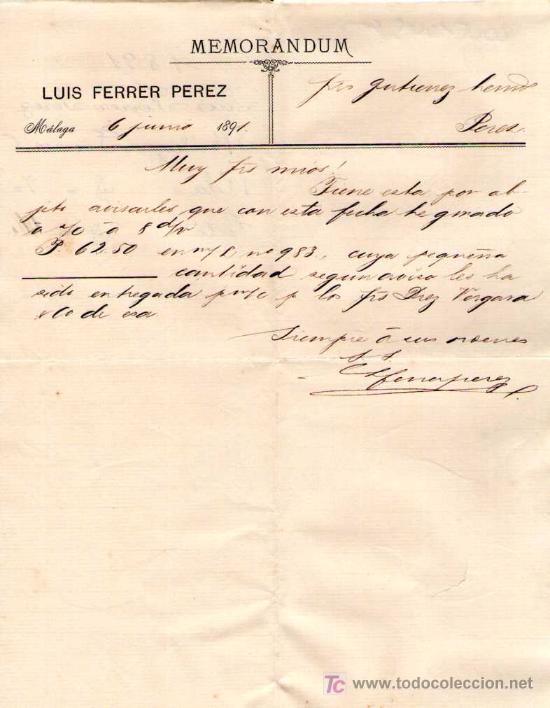 MEMORANDUM
LUIS FERRER PEREZ
Málaga 6 junio 1891.
Srs Gutierrez herms
Perez
Muy Srs mios!
Tiene esta por ob
jeto avisarles que con esta fecha he girado
a 8 d/v
P. 62.50 en no 983, cuya pequeña
cantidad segun aviso les ha
sido entregada por los Srs Diez Vergara
& Co de esa
Siempre á sus ordenes
S. S.
LFerrerperez
TC www.todocoleccion.net